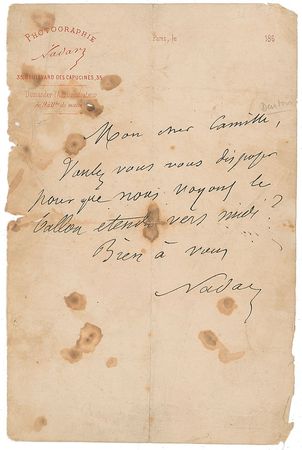 PHOTOGRAPHIE
Nadar
35 BOULEVARD DES CAPUCINES, 35
Demander l'Administrateur
Paris, le 186
Mon cher Camille,
Voulez vous vous disposer
pour que nous voyons le
ballon étendu vers midi?
Bien à vous
Nadar